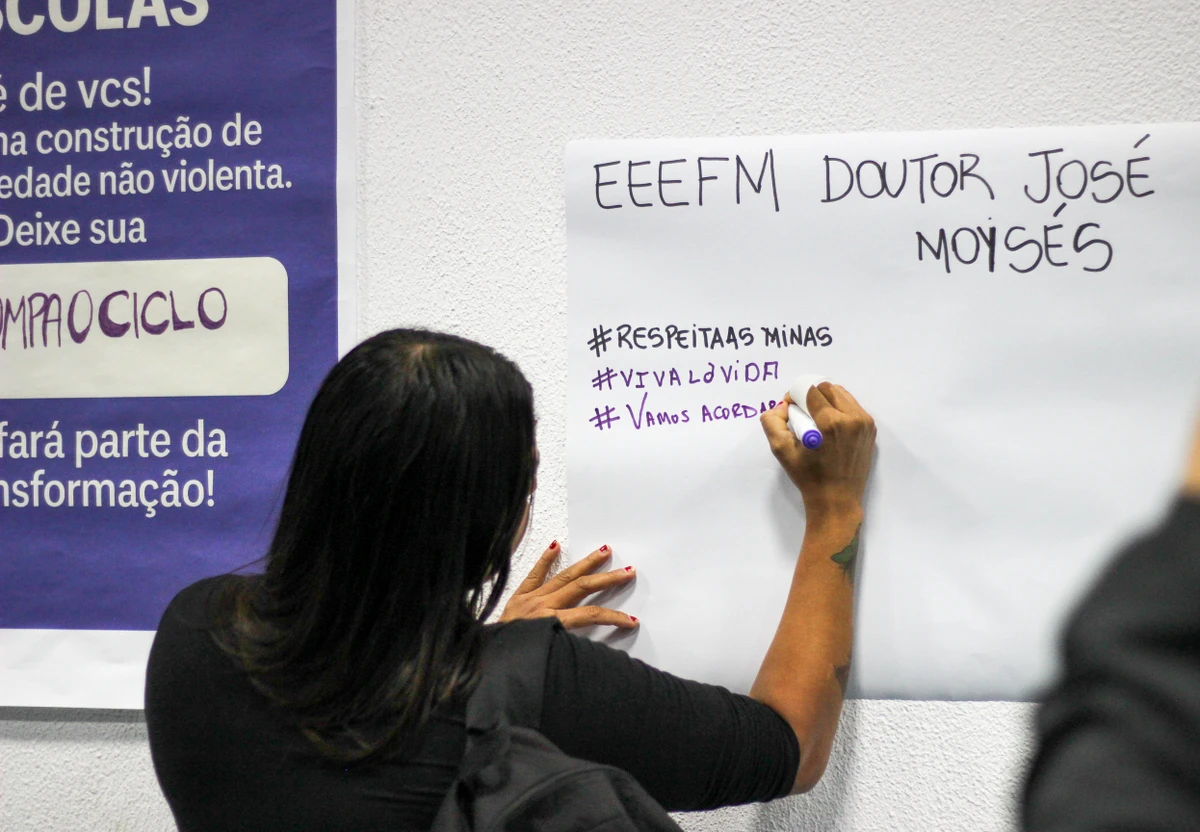 SCOLAS
é de vcs!
na construção de
edade não violenta.
Deixe sua
OMPAOCICLO
fará parte da
nsformação!
EEEFM DOUTOR JOSÉ
MOYSÉS
#RESPEITAAS MINAS
#VIVALaViDA
# VAMOS ACORDAR